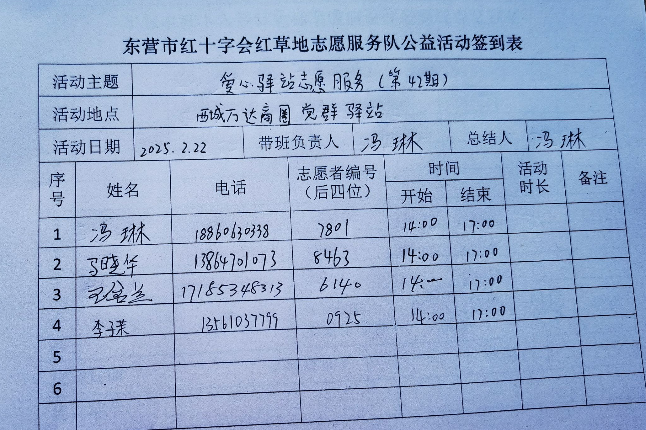 东营市红十字会红草地志愿服务队公益活动签到表
活动主题 爱心驿站志愿服务（第42期）
活动地点 西城万达商圈党群驿站
活动日期 2025.2.22 带班负责人 冯琳 总结人 冯琳
序号 姓名 电话 志愿者编号（后四位） 时间 开始 结束 活动时长 备注
1 冯琳 18860630338 7801 14:00 17:00
2 马晓华 13864701073 8463 14:00 17:00
3 17185348313 6140 14:— 17:00
4 李子茉 13561037799 0925 14:00 17:00
5
6